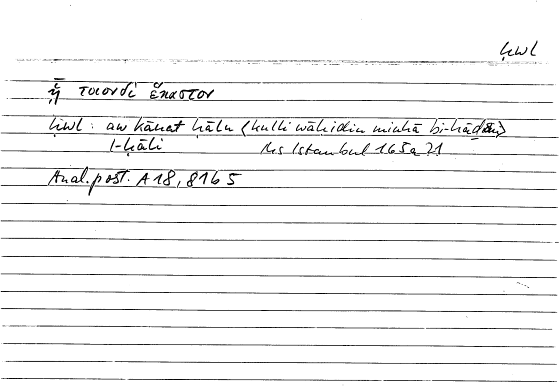 ḥwl
ᾗ τοιονδὶ ἕκαστον
ḥwl: aw kānat ḥālu (kulli wāḥidin minhā bi-hāḏihi)
l-ḥāli Ms Istanbul 165a21
Anal. post. A 18, 81b5